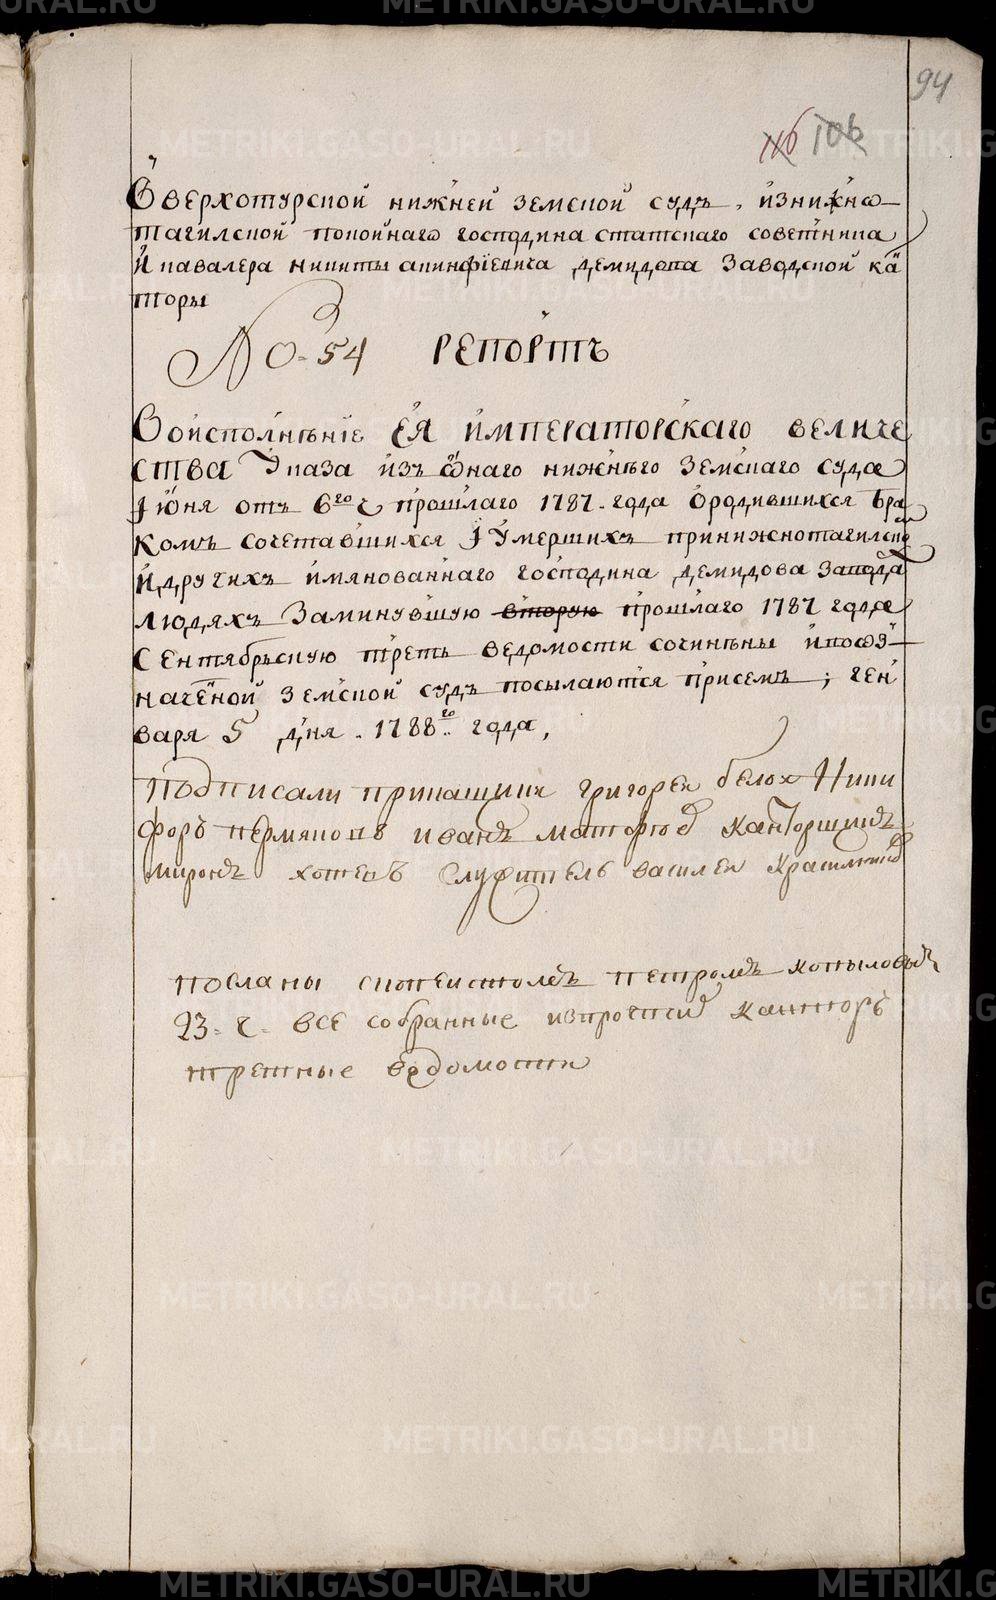 94
116 106
Въ верхотурской нижней земской судъ, изнижно
тагилской покойнаго господина статскаго советника
и кавалера никиты акинфіевича демидова заводской ка
торы
No 54 Репортъ
Воисполненіе Ея императорскаго величе
ства указа изъ онаго нижнего земскаго суда
Июня отъ 6го ч прошлаго 1787 года ородившихся бра
комъ сочетавшихся і умершихъ принижнотагилской
и другихъ имянованнаго господина демидова завода
людяхъ заминувшую вторую прошлаго 1787 года
Сентябрьскую треть ведомости сочинены ипооз
наченой земской судъ посылаются присемъ; ген
варя 5 дня 1788го года,
Подписали прикащики григорей белой Ники
форъ пермяковъ иванъ конторщикъ
миронъ служитель василей
посланы скопеистомъ петромъ копыловымъ
23 ч все собранные испротчих кантторъ
третные ведомости
METRIKI.GASO-URAL.RU